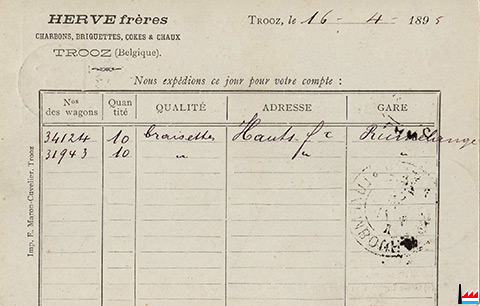 HERVE frères
CHARBONS, BRIQUETTES, COKES & CHAUX
TROOZ (Belgique).
TROOZ, le 16 - 4 - 1895
Nous expédions ce jour pour votre compte :
Nos des wagons Quantité QUALITÉ ADRESSE GARE
34124 10 Braisettes Hauts-fx
31943 10 " " "
Imp. E. Maron-Cuvelier, Trooz